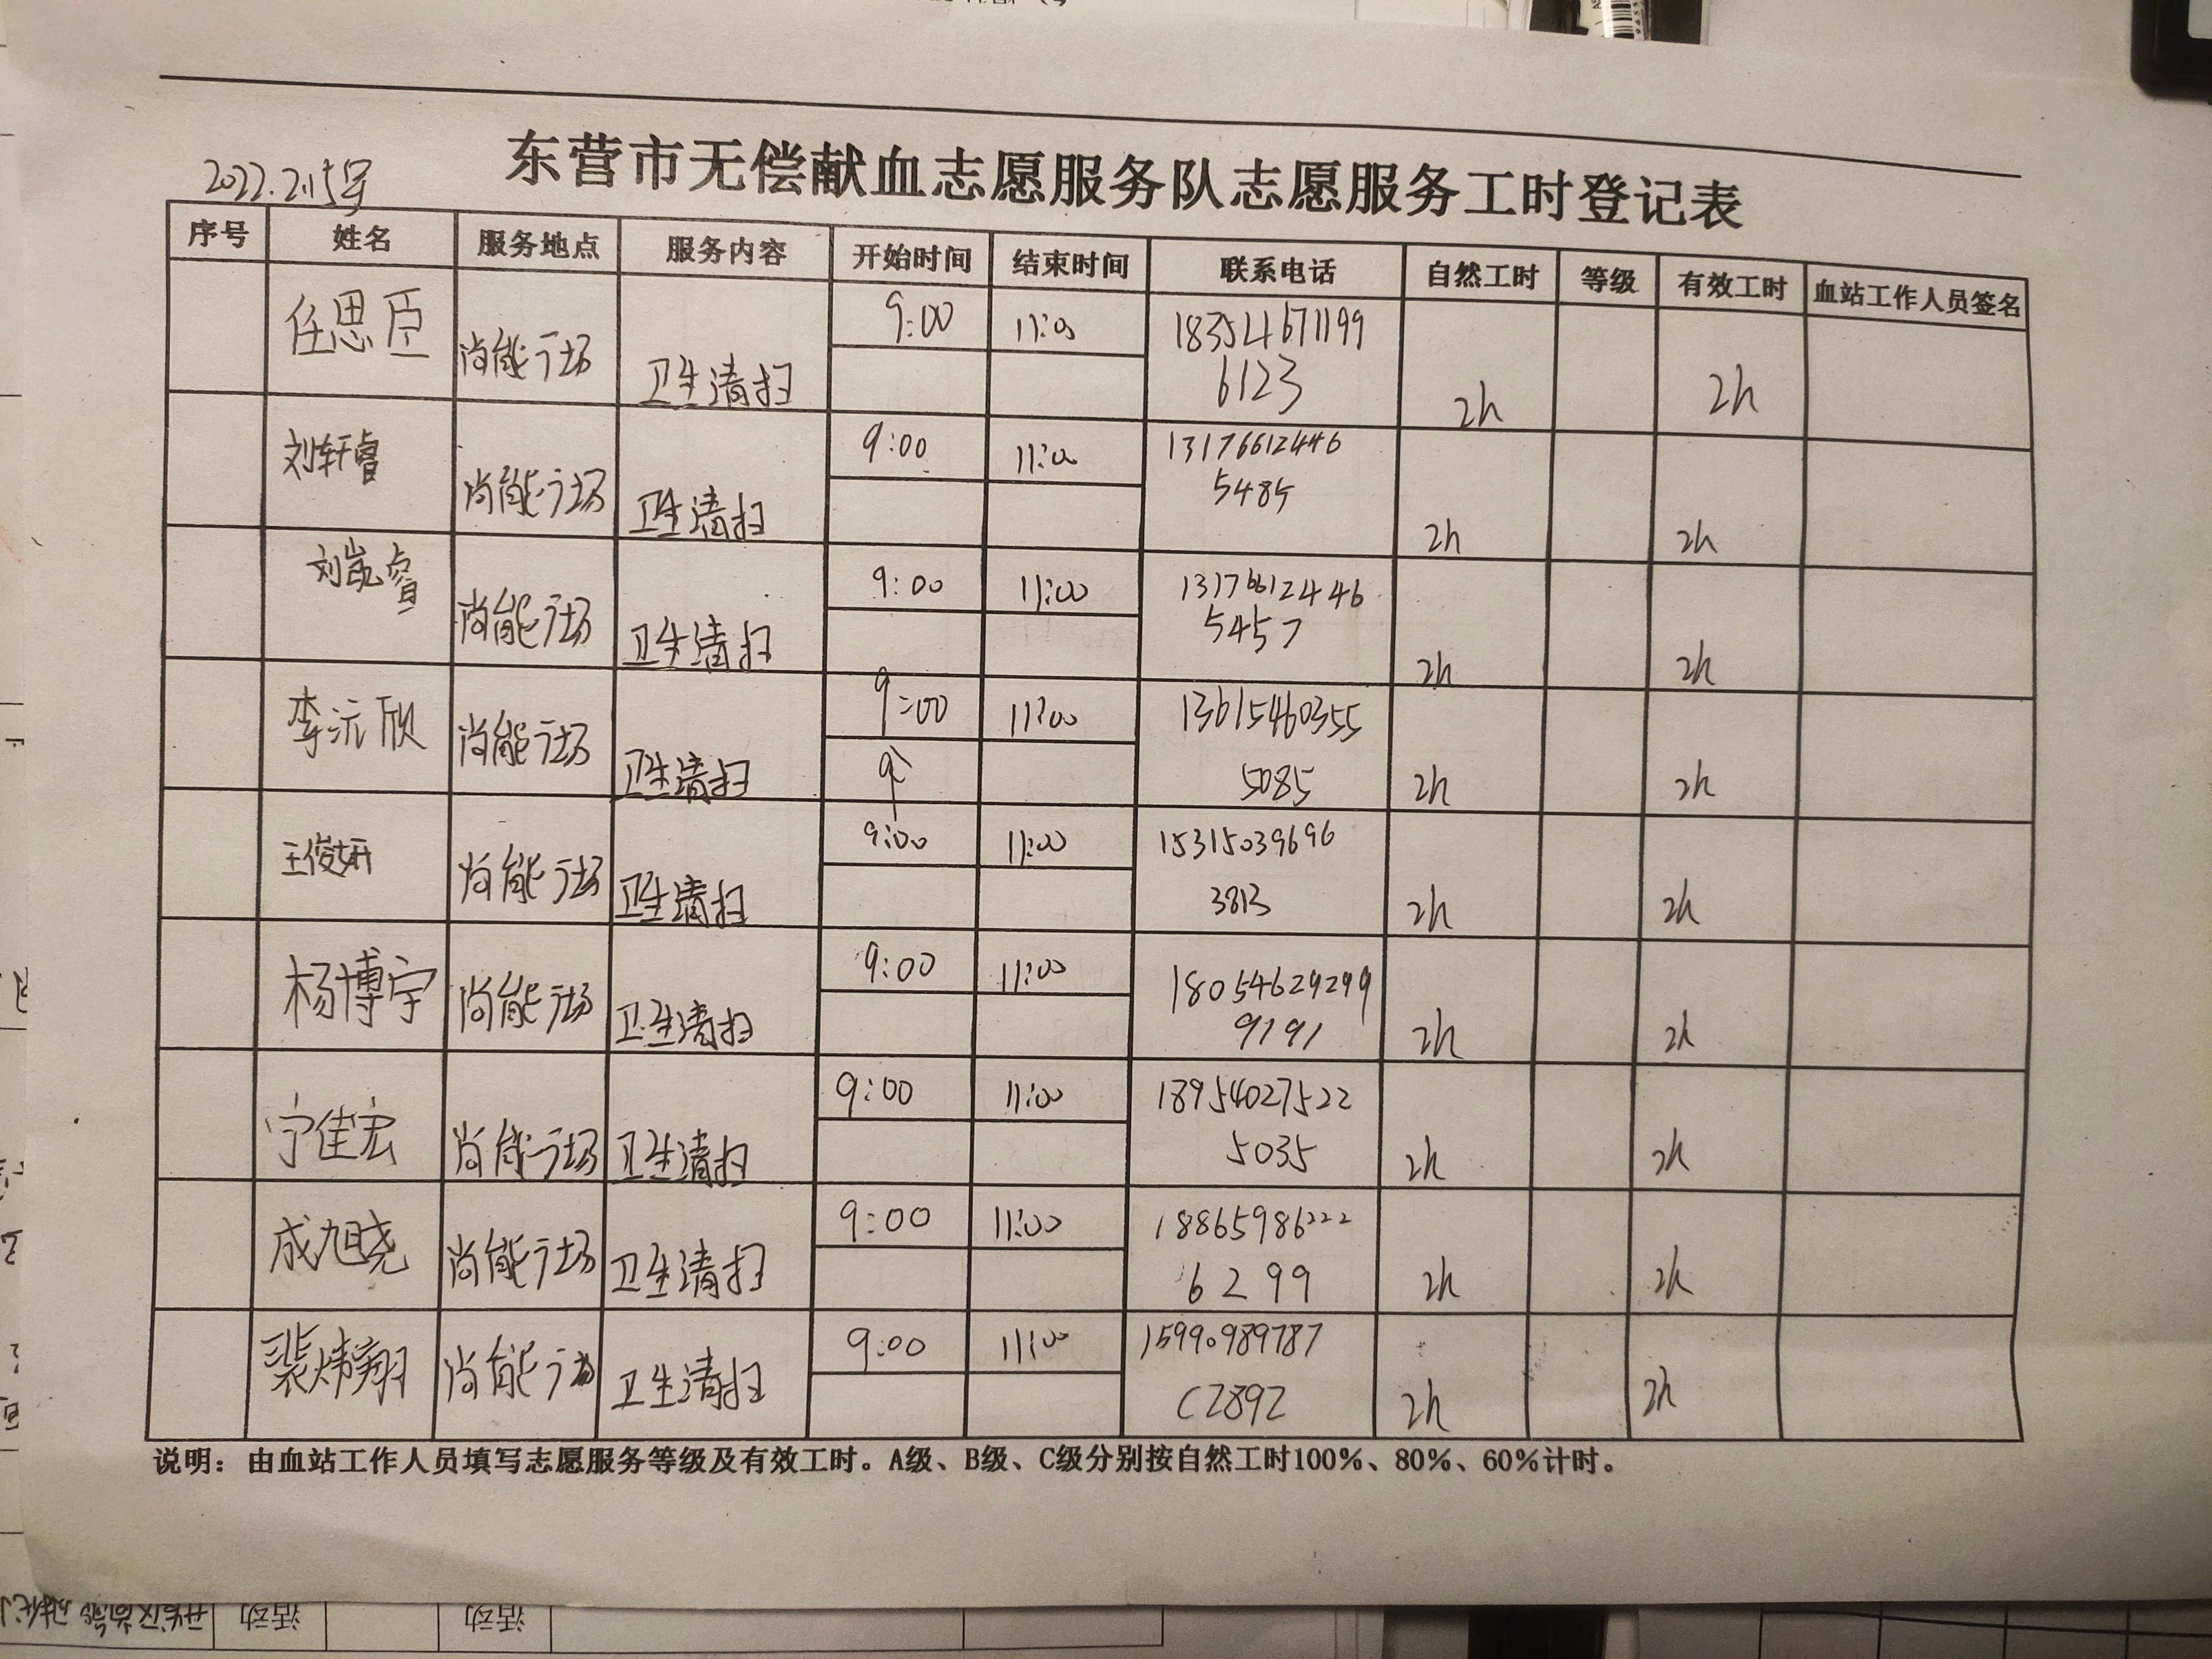 东营市无偿献血志愿服务队志愿服务工时登记表
2022.2.15号
序号 姓名 服务地点 服务内容 开始时间 结束时间 联系电话 自然工时 等级 有效工时 血站工作人员签名
任思臣 尚能广场 卫生清扫 9:00 11:00 18354671199 2h 2h
6123
刘轩睿 尚能广场 卫生清扫 9:00 11:00 13176612446 2h 2h
5485
刘凯睿 尚能广场 卫生清扫 9:00 11:00 13176612446 2h 2h
5457
李沅欣 尚能广场 卫生清扫 9:00 11:00 13615460355 2h 2h
9 5085
王俊妍 尚能广场 卫生清扫 9:00 11:00 15315039696 2h 2h
3813
杨博宇 尚能广场 卫生清扫 9:00 11:00 18054629299 2h 2h
9191
宁佳宏 尚能广场 卫生清扫 9:00 11:00 18954027522 2h 2h
5035
成旭晓 尚能广场 卫生清扫 9:00 11:00 18865986222 2h 2h
6299
裴炜翔 尚能广场 卫生清扫 9:00 11:00 15990989787 2h 2h
C2892
说明：由血站工作人员填写志愿服务等级及有效工时。A级、B级、C级分别按自然工时100%、80%、60%计时。
活动 活动